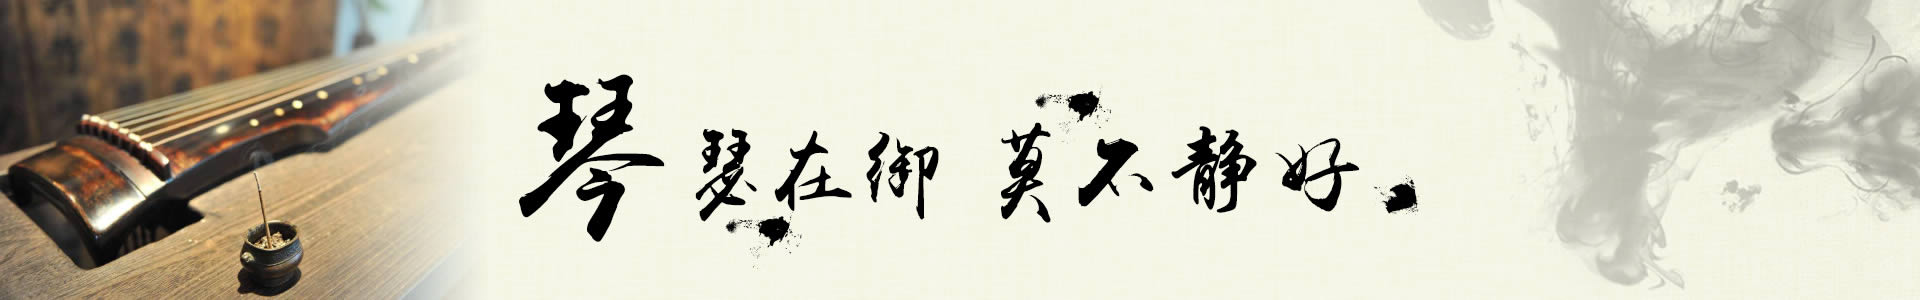 琴瑟在御 莫不静好